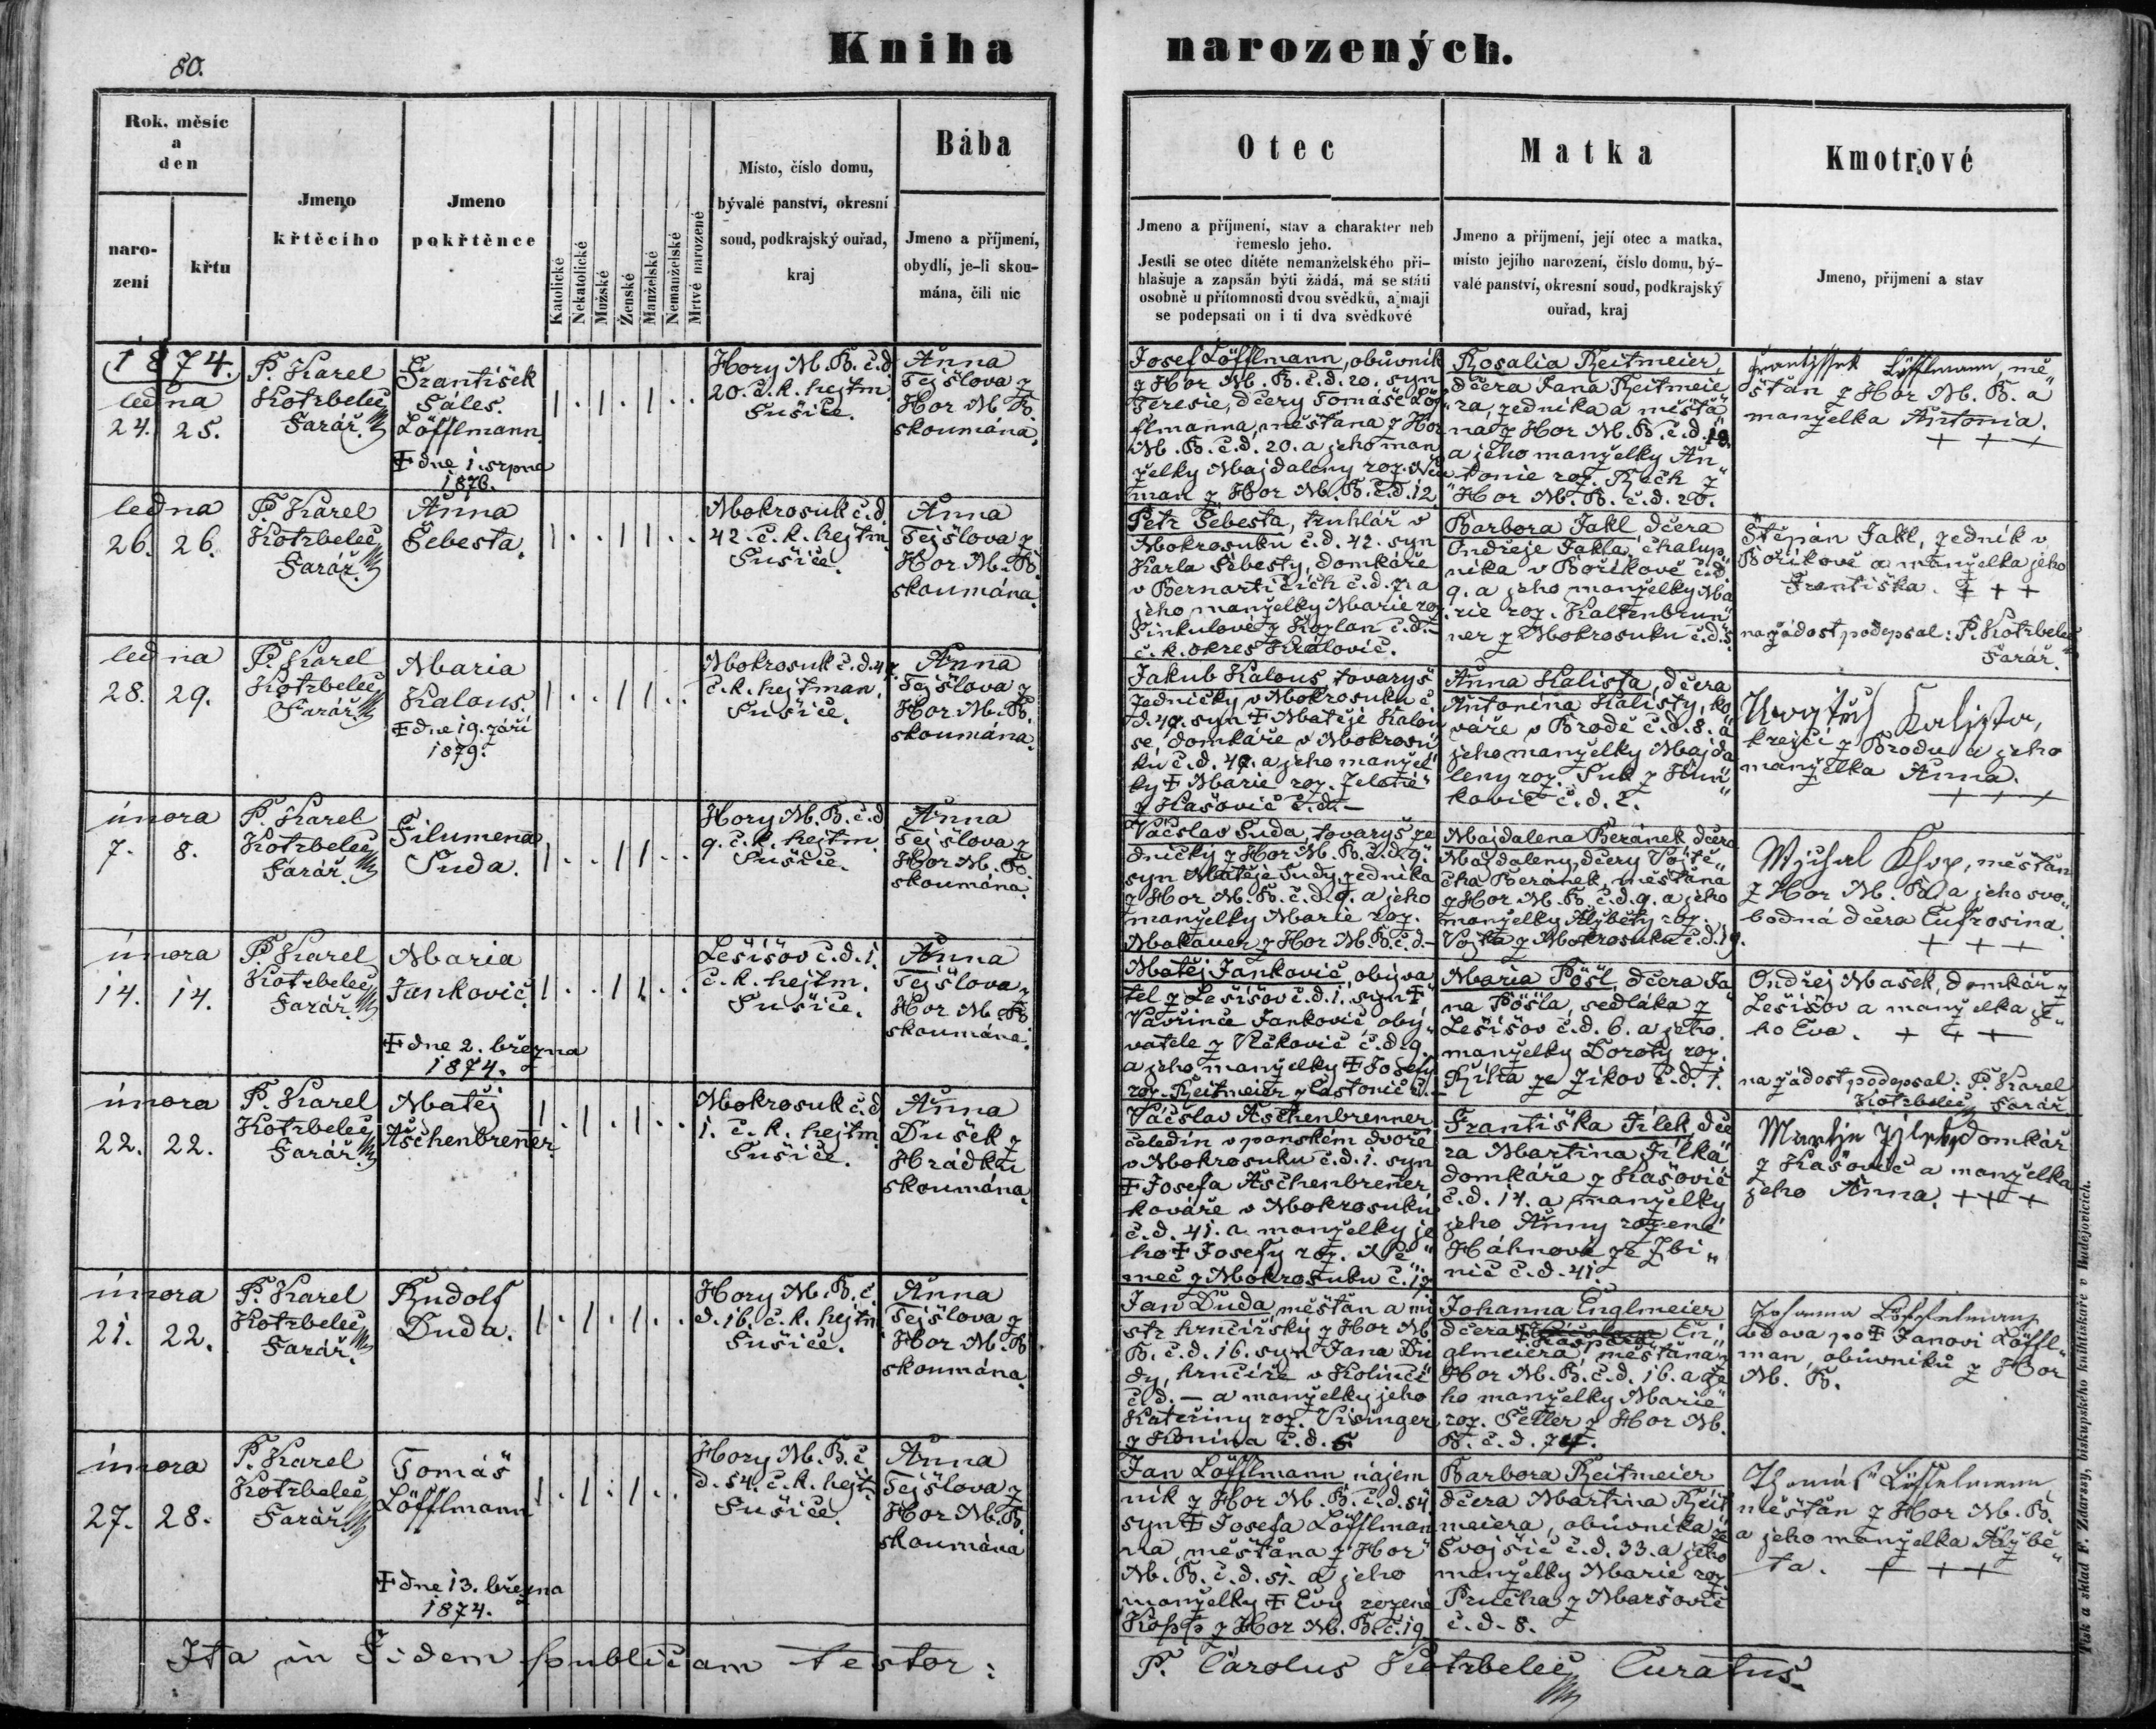 80.
Kniha narozených.
Rok, měsíc
a
den
naro-
zení
křtu
Jmeno
křtěcího
Jmeno
pokřtěnce
Katolické
Nekatolické
Mužské
Ženské
Manželské
Nemanželské
Mrtvé narozené
Místo, číslo domu,
bývalé panství, okresní
soud, podkrajský ouřad,
kraj
Bába
Jmeno a příjmení,
obydlí, je-li skou-
mána, čili nic
Otec
Jmeno a příjmení, stav a charakter neb
řemeslo jeho.
Jestli se otec dítěte nemanželského při-
hlašuje a zapsán býti žádá, má se státi
osobně u přítomnosti dvou svědků, a mají
se podepsati on i ti dva svědkové
Matka
Jmeno a příjmení, její otec a matka,
místo jejího narození, číslo domu, bý-
valé panství, okresní soud, podkrajský
ouřad, kraj
Kmotrové
Jmeno, příjmení a stav
1874.
ledna
24. 25.
P. Karel
Kotrbelec
Farář.
František
Sáles.
Löfflmann
† dne 1. srpna
1876.
1 . 1 . 1 . .
Hory M. B. č.d.
20. č. k. hejtm.
Sušice.
Anna
Tejšlova z
Hor M. B.
skoumána.
Josef Löfflmann, obůvník
z Hor M. B. č.d. 20. syn
Teresie, dcery Tomáše Löf
flmanna, měšťana z Hor
M. B. č.d. 20. a jeho man
želky Majdaleny roz. Neu
man z Hor M. B. č.d. 12
Rosalia Reitmeier,
dcera Jana Reitmeie
ra, zedníka a měšťa
na z Hor M. B. č.d.
a jeho manželky An„
tonie roz. Rech z
Hor M. B. č.d. 20.
Frantissek Löfflmann, mě„
šťan z Hor M. B. a
manželka Antonia.
+ + +
ledna
26. 26.
P. Karel
Kotrbelec
Farář.
Anna
Šebesta.
1 . . 1 1 . .
Mokrosuk č.d.
42. č. k. hejtm
Sušice.
Anna
Tejšlova z
Hor M. B.
skoumána.
Petr Šebesta, truhlář v
Mokrosuku č.d. 42. syn
Karla Šebesty, domkáře
v Bernarticích č.d. 7. a
jeho manželky Marie roz.
Sinkulové z Kozlan č.d.–
č. k. okres Královic.
Barbora Jakl, dcera
Ondřeje Jakla, chalup„
níka v Bořikově č.d.
9. a jeho manželky Ma
rie roz. Kaltenbrun„
ner z Mokrosuku č.d. 5.
Štěpán Jakl, zedník v
Bořikově a manželka jeho
Františka. + + +
na žádost podepsal: P. Kotrbelec
Farář.
ledna
28. 29.
P. Karel
Kotrbelec
Farář.
Maria
Kalous.
† dne 19. září
1879.
1 . . 1 1 . .
Mokrosuk č.d. 47.
č. k. hejtman.
Sušice.
Anna
Tejšlova z
Hor M. B.
skoumána.
Jakub Kalous, tovaryš
zednický v Mokrosuku č.
d. 47. syn † Matěje Kalou
se, domkáře v Mokrosu
ku č.d. 47. a jeho manžel
ky † Marie roz. Zelené
z Kašovic č.d.–
Anna Kalista, dcera
Antonína Kalisty, ko
váře v Brodě č.d. 8. a
jeho manželky Majda
leny roz. Suk z Kun„
kovic č.d. 2.
Kalista,
krejčí z Brodu a jeho
manželka Anna.
+ + +
února
7. 8.
P. Karel
Kotrbelec
Farář.
Filumena
Suda.
1 . . 1 1 . .
Hory M. B. č.d
9. č. k. hejtm.
Sušice.
Anna
Tejšlova z
Hor M. B.
skoumána.
Václav Suda, tovaryš ze
dnický z Hor M. B. č.d. 9.
syn Matěje Sudy, zedníka
z Hor M. B. č.d. 9. a jeho
manželky Marie roz.
Makauer z Hor M. B. č.d.–
Majdalena Beránek, dcera
Majdaleny, dcery Vojtě„
cha Beránek, měšťana
z Hor M. B. č.d. 9. a jeho
manželky Alžběty roz.
Vojta z Mokrosuku č.d. 19.
Mychal Khop, měšťan
z Hor M. B. a jeho svo„
bodná dcera Eufrosina.
+ + +
února
14. 14.
P. Karel
Kotrbelec
Farář.
Maria
Jankovič.
† dne 2. března
1874.
1 . . 1 1 . .
Lešišov č.d. 1.
č. k. hejtm.
Sušice.
Anna
Tejšlova z
Hor M. B.
skoumána.
Matěj Jankovič, obýva
tel z Lešišov č.d. 1. syn †
Vavřince Jankovič, obý„
vatele z Vlčkovic č.d. 9.
a jeho manželky † Josefy
roz. Reitmeier z Častonic č.–
Maria Pöšl, dcera Ja
na Pöšla, sedláka z
Lešišov č.d. 6. a jeho
manželky Doroty roz.
Říha ze Zikov č.d. 1.
Ondřej Mašek, domkář z
Lešišov a manželka je„
ho Eva. + + +
na žádost podepsal: P. Karel
Kotrbelec Farář
února
22. 22.
P. Karel
Kotrbelec
Farář.
Matěj
Aschenbrenner.
1 . 1 . 1 . .
Mokrosuk č.d
1. č. k. hejtm.
Sušice.
Anna
Dušek z
Hrádku
skoumána.
Václav Aschenbrenner
čeledín v panském dvoře
v Mokrosuku č.d. 1. syn
† Josefa Aschenbrenner,
kováře v Mokrosuku
č.d. 41. a manželky je
ho † Josefy roz. Ně„
meč z Mokrosuku č. 17
Františka Jílek, dce
ra Martina Jílka
domkáře z Kašovic
č.d. 14. a manželky
jeho Anny rozené
Háhnové ze Zbi„
nic č.d. 41.
Martin Jílek, domkář
z Kašovic a manželka
jeho Anna. + + +
února
21. 22.
P. Karel
Kotrbelec
Farář.
Rudolf
Duda.
1 . 1 . 1 . .
Hory M. B. č.
d. 16. č. k. hejtm
Sušice.
Anna
Tejšlova z
Hor M. B
skoumána.
Jan Duda, měšťan a mi
str hrnčířský z Hor M.
B. č.d. 16. syn Jana Du
dy, hrnčíře v Kolinci
č.d. – a manželky jeho
Kateřiny roz. Visinger
z Konína č.d. 5
Johanna Englmeier
dcera † Kaspara En„
glmeiera, měšťana z
Hor M. B. č.d. 16. a je
ho manželky Marie
roz. Šetler z Hor M.
B. č.d. 74.
Johanna Löffelmann
vdova po † Janovi Löffl„
man, obůvníku z Hor
M. B.
února
27. 28.
P. Karel
Kotrbelec
Farář.
Tomáš
Löfflmann
† dne 13. března
1874.
1 . 1 . 1 . .
Hory M. B. č
d. 54. č. k. hejt.
Sušice.
Anna
Tejšlova z
Hor M. B.
skoumána
Jan Löfflmann nájem
ník z Hor M. B. č.d. 54
syn † Josefa Löfflman
na, měšťana z Hor
M. B. č.d. 51. a jeho
manželky † Evy rozené
Kopp z Hor M. B. č. 19.
Barbora Reitmeier
dcera Martina Reit
meiera, obůvníka ze
Svojšic č.d. 33. a jeho
manželky Marie roz
Průcha z Maršovic
č.d. 8.
Thomáš Löffelmann,
měšťan z Hor M. B.
a jeho manželka Alžbě„
ta. + + +
Ita in Fidem publicam testor: P. Carolus Kotrbelec Curatus.
Tisk a sklad F. Zdarssy, biskupského knihtiskaře v Budějovicích.